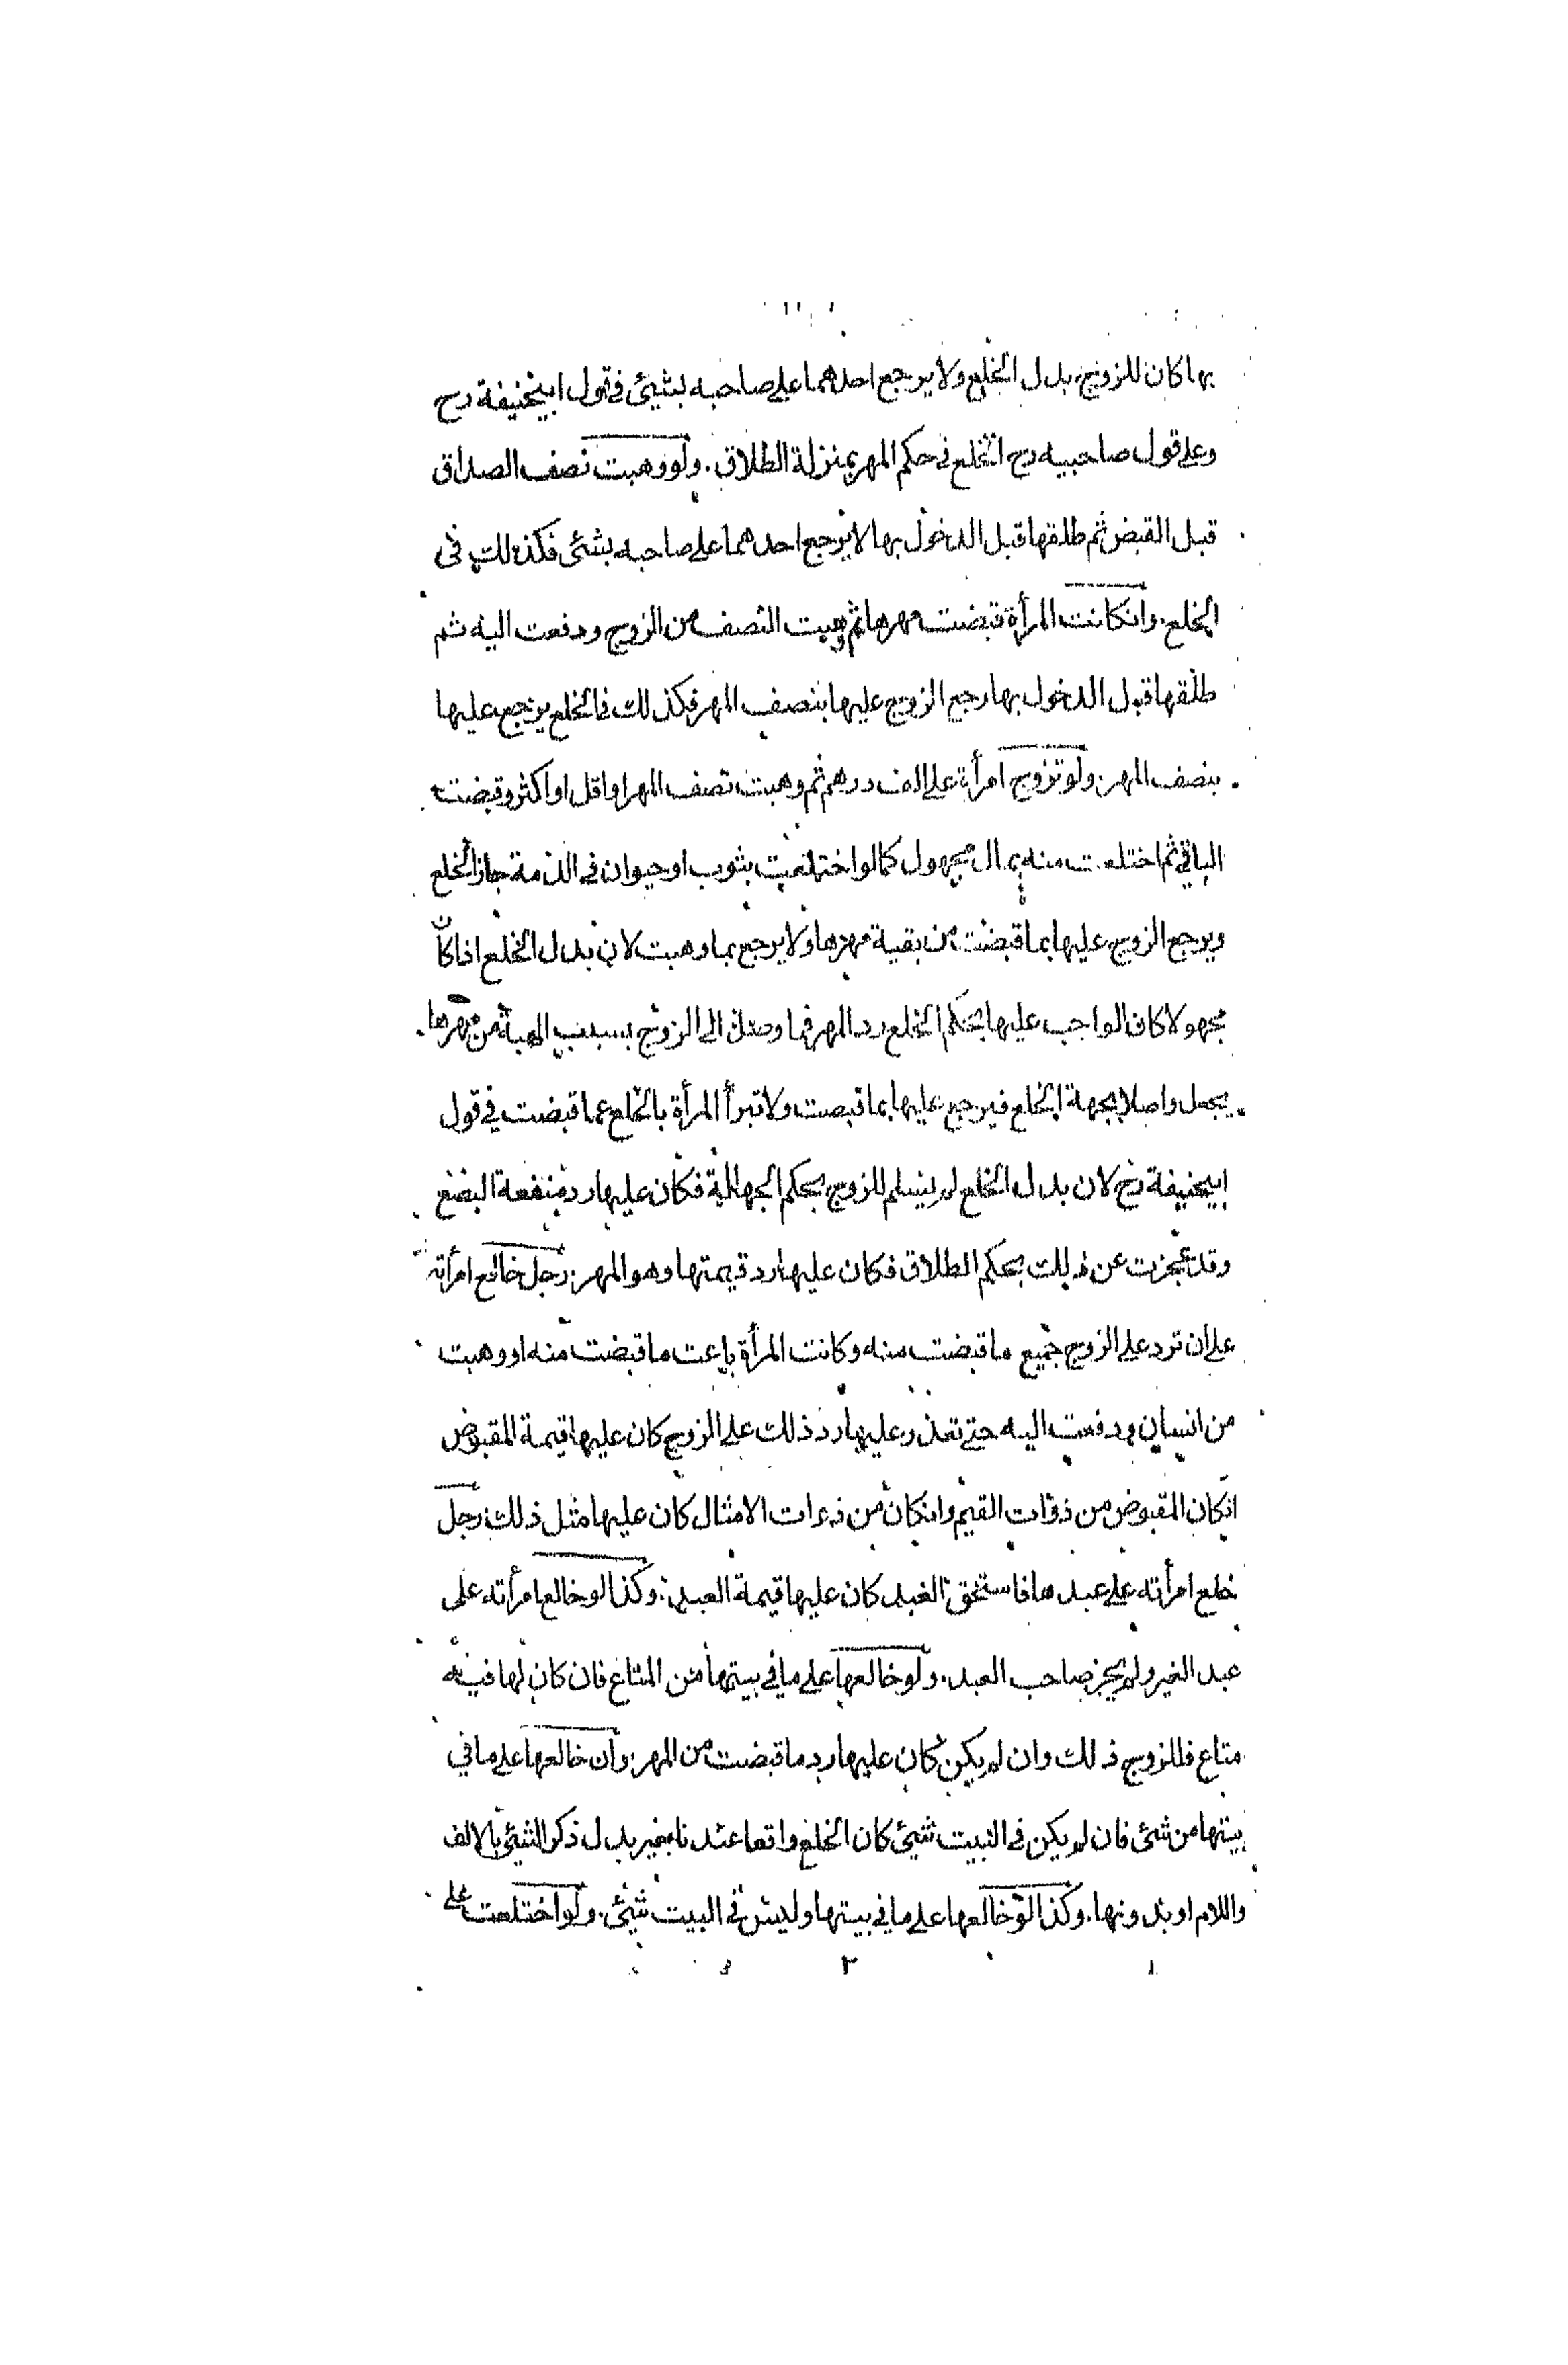 بها كان للزوج بدل الخلع ولا يرجع احدهما على صاحبه بشيئ فى قول ابيحنيفة رح
وعلى قول صاحبيه رح الخلع فى حكم المهر بمنزلة الطلاق. ولو وهبت نصف الصداق
قبل القبض ثم طلقها قبل الدخول بها لا يرجع احدهما على صاحبه بشئ فكذلك فى
الخلع. وانكانت المرأة قبضت مهرها ثم وهبت النصف من الزوج ودفعت اليه ثم
طلقها قبل الدخول بها رجع الزوج عليها بنصف المهر فكذلك فى الخلع يرجع عليها
بنصف المهر. ولو تزوج امرأة على الف درهم ثم وهبت نصف المهر او اقل او اكثر وقبضت
الباقى ثم اختلعت منه بمال مجهول كما لو اختلعت بثوب او حيوان فى الذمة جاز الخلع
ويرجع الزوج عليها بما قبضت من بقية مهرها ولا يرجع بما وهبت لان بدل الخلع اذا كان
مجهولا كان الواجب عليها بحكم الخلع رد المهر فما وصل الى الزوج بسبب الهبة من مهرها
يجعل واصلا بجهة الخلع فيرجع عليها بما قبضت ولا تبرأ المرأة بالخلع عما قبضت فى قول
ابيحنيفة رح لان بدل الخلع لم يسلم للزوج بحكم الجهالة فكان عليها رد منفعة البضع
وقد عجزت عن ذلك بحكم الطلاق فكان عليها رد قيمتها وهو المهر. رجل خالع امرأته
على ان ترد على الزوج جميع ما قبضت منه وكانت المرأة باعت ما قبضت منه او وهبت
من انسان ودفعت اليه حتى تعذر عليها رد ذلك على الزوج كان عليها قيمة المقبوض
انكان المقبوض من ذوات القيم وانكان من ذوات الامثال كان عليها مثل ذلك. رجل
خلع امرأته على عبدها فاستحق العبد كان عليها قيمة العبد. وكذا لو خالع امرأته على
عبد الغير ولم يجز صاحب العبد. ولو خالعها على ما فى بيتها من المتاع فان كان لها فيه
متاع فللزوج ذلك وان لم يكن كان عليها رد ما قبضت من المهر. وان خالعها على ما فى
بيتها من شئ فان لم يكن فى البيت شيئ كان الخلع واقعا عندنا بغير بدل ذكر الشيئ بالالف
واللام او بدونها. وكذا لو خالعها على ما فى بيتها وليس فى البيت شيئ. ولو اختلعت على